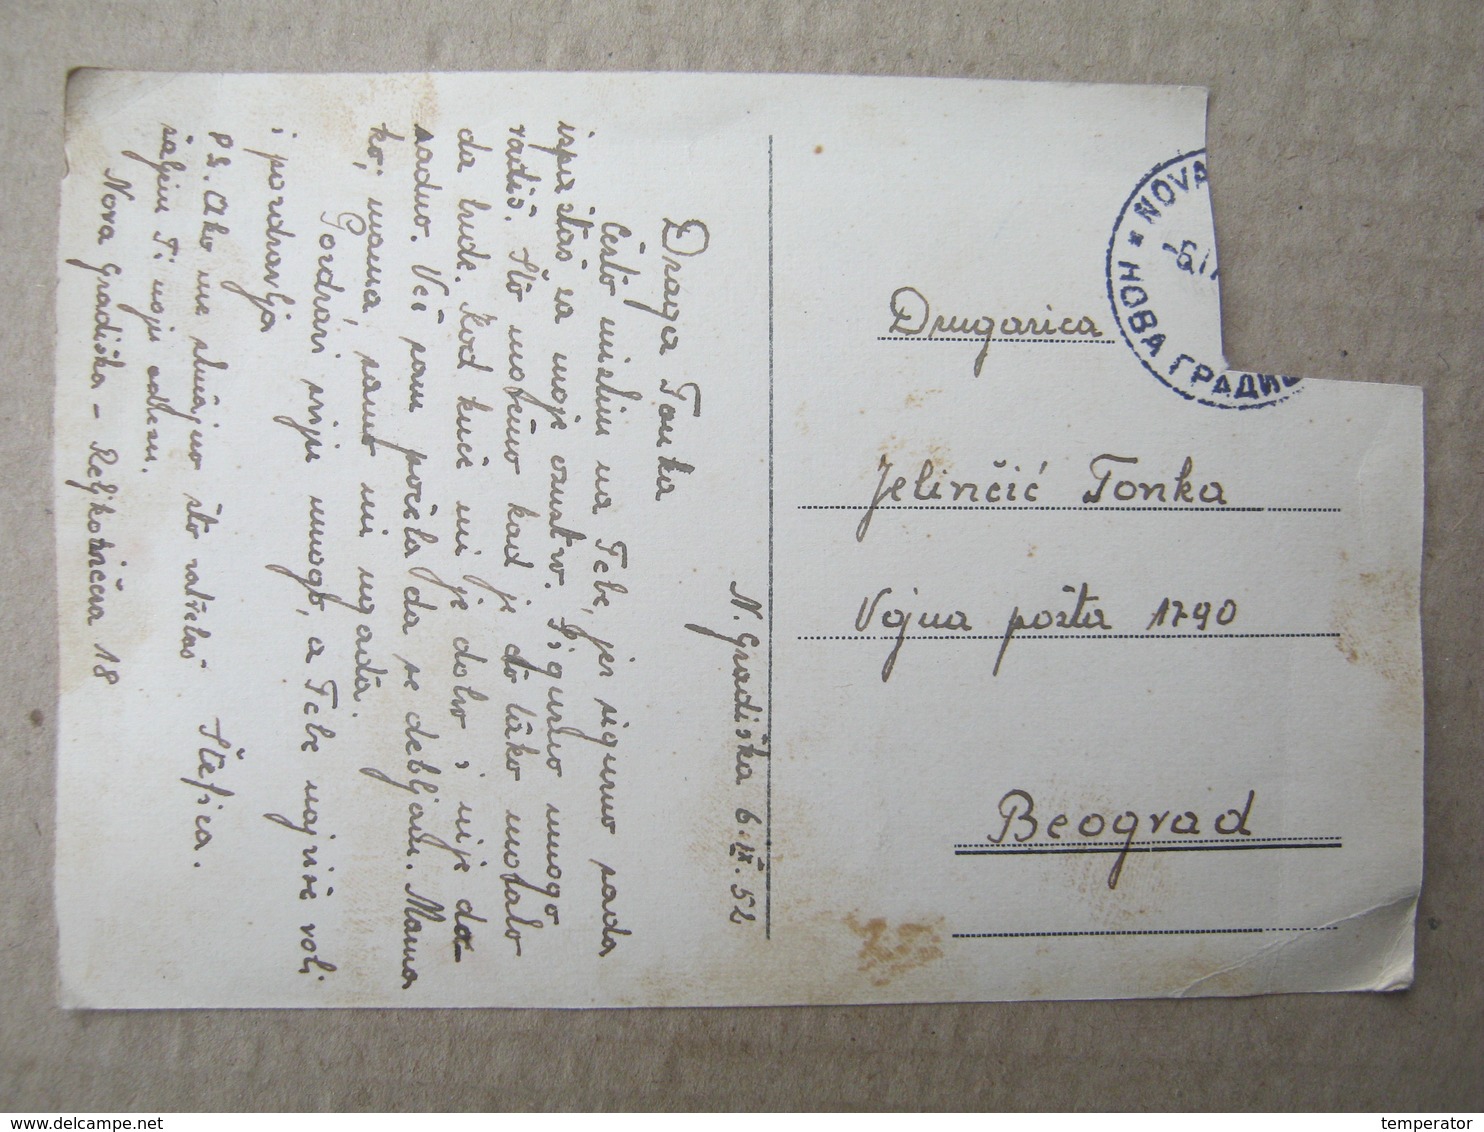 N. Gradiška 6.IX.52
Draga Tonka
Često mislim na Tebe, jer sigurno sada
ispaštaš sa moje odsustvo. Sigurno mnogo
radiš. Što možemo kad je to tako moralo
da bude. Kod kuće mi je dobro i nije do-
sadno. Već sam počela da se debljam. Mama
ko mama, samo mi ugađa.
Pozdravi sviju mnogo, a Tebe najviše voli
i pozdravlja
Štefica.
PS. Ako me slučajno što zatrebaš
šaljem Ti moju adresu.
Nova Gradiška - Reljkovićeva 18
Drugarica
Jelinčić Tonka
Vojna pošta 1790
Beograd
NOVA
-6.IX
НОВА ГРАДИШ
temperator